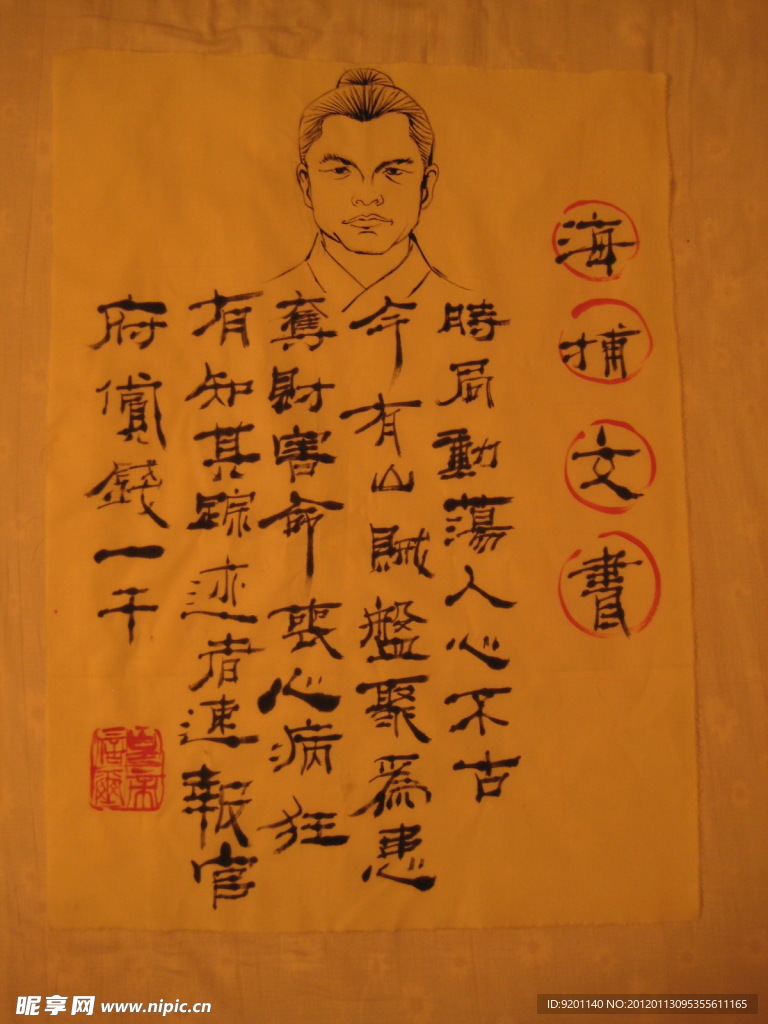 海捕文書
時局動蕩人心不古
今有山賊盤聚為患
奪財害命喪心病狂
有知其踪迹者速報官
府償錢一千
昵享网 www.nipic.cn
ID:9201140 NO:20120113095355611165